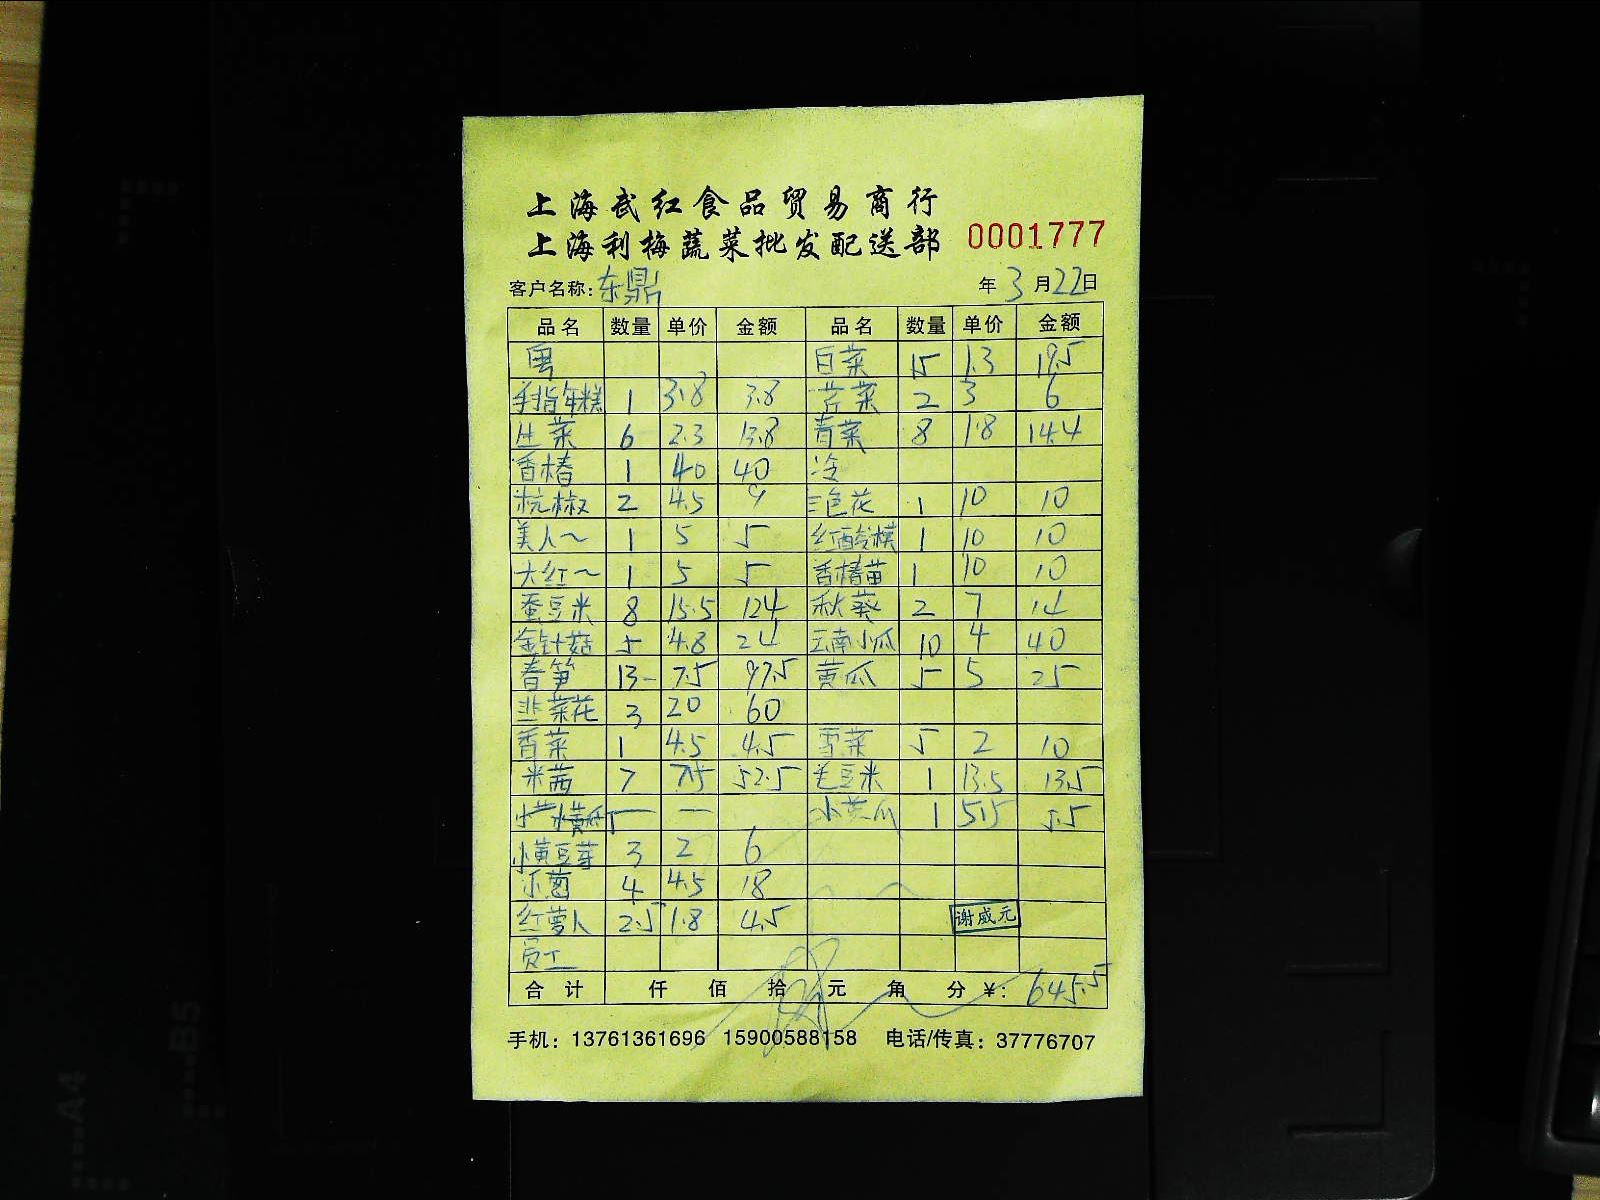 上海武红食品贸易商行
上海利梅蔬菜批发配送部 0001777
客户名称: 东鼎 年 3 月 22 日
品名 数量 单价 金额 品名 数量 单价 金额
粤 白菜 15 1.3 19.5
手指年糕 1 3.8 3.8 芹菜 2 3 6
生菜 6 2.3 13.8 青菜 8 1.8 14.4
香椿 1 40 40 冷
杭椒 2 4.5 9 三色花 1 10 10
美人～ 1 5 5 红酸模 1 10 10
大红～ 1 5 5 香椿苗 1 10 10
蚕豆米 8 15.5 124 秋葵 2 7 14
金针菇 5 4.8 24 云南小瓜 10 4 40
春笋 13 7.5 97.5 黄瓜 5 5 25
韭菜花 3 20 60
香菜 1 4.5 4.5 雪菜 5 2 10
米茜 7 7.5 52.5 毛豆米 1 13.5 13.5
小黄瓜 — — 小黄瓜 1 5.5 5.5
小黄豆芽 3 2 6
小葱 4 4.5 18
红萝卜 2.5 1.8 4.5 谢威元
员工
合计 仟 佰 拾 元 角 分 ¥: 645.5
手机: 13761361696 15900588158 电话/传真: 37776707